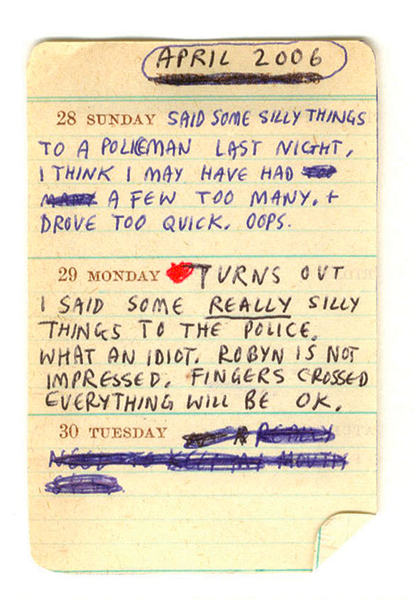 APRIL 2006
28 SUNDAY SAID SOME SILLY THINGS
TO A POLICEMAN LAST NIGHT,
I THINK I MAY HAVE HAD TOO
MANY A FEW TOO MANY. +
DROVE TOO QUICK. OOPS.
29 MONDAY TURNS OUT
I SAID SOME REALLY SILLY
THINGS TO THE POLICE.
WHAT AN IDIOT. ROBYN IS NOT
IMPRESSED. FINGERS CROSSED
EVERYTHING WILL BE OK.
30 TUESDAY REALLY
NEED TO KEEP MY MOUTH